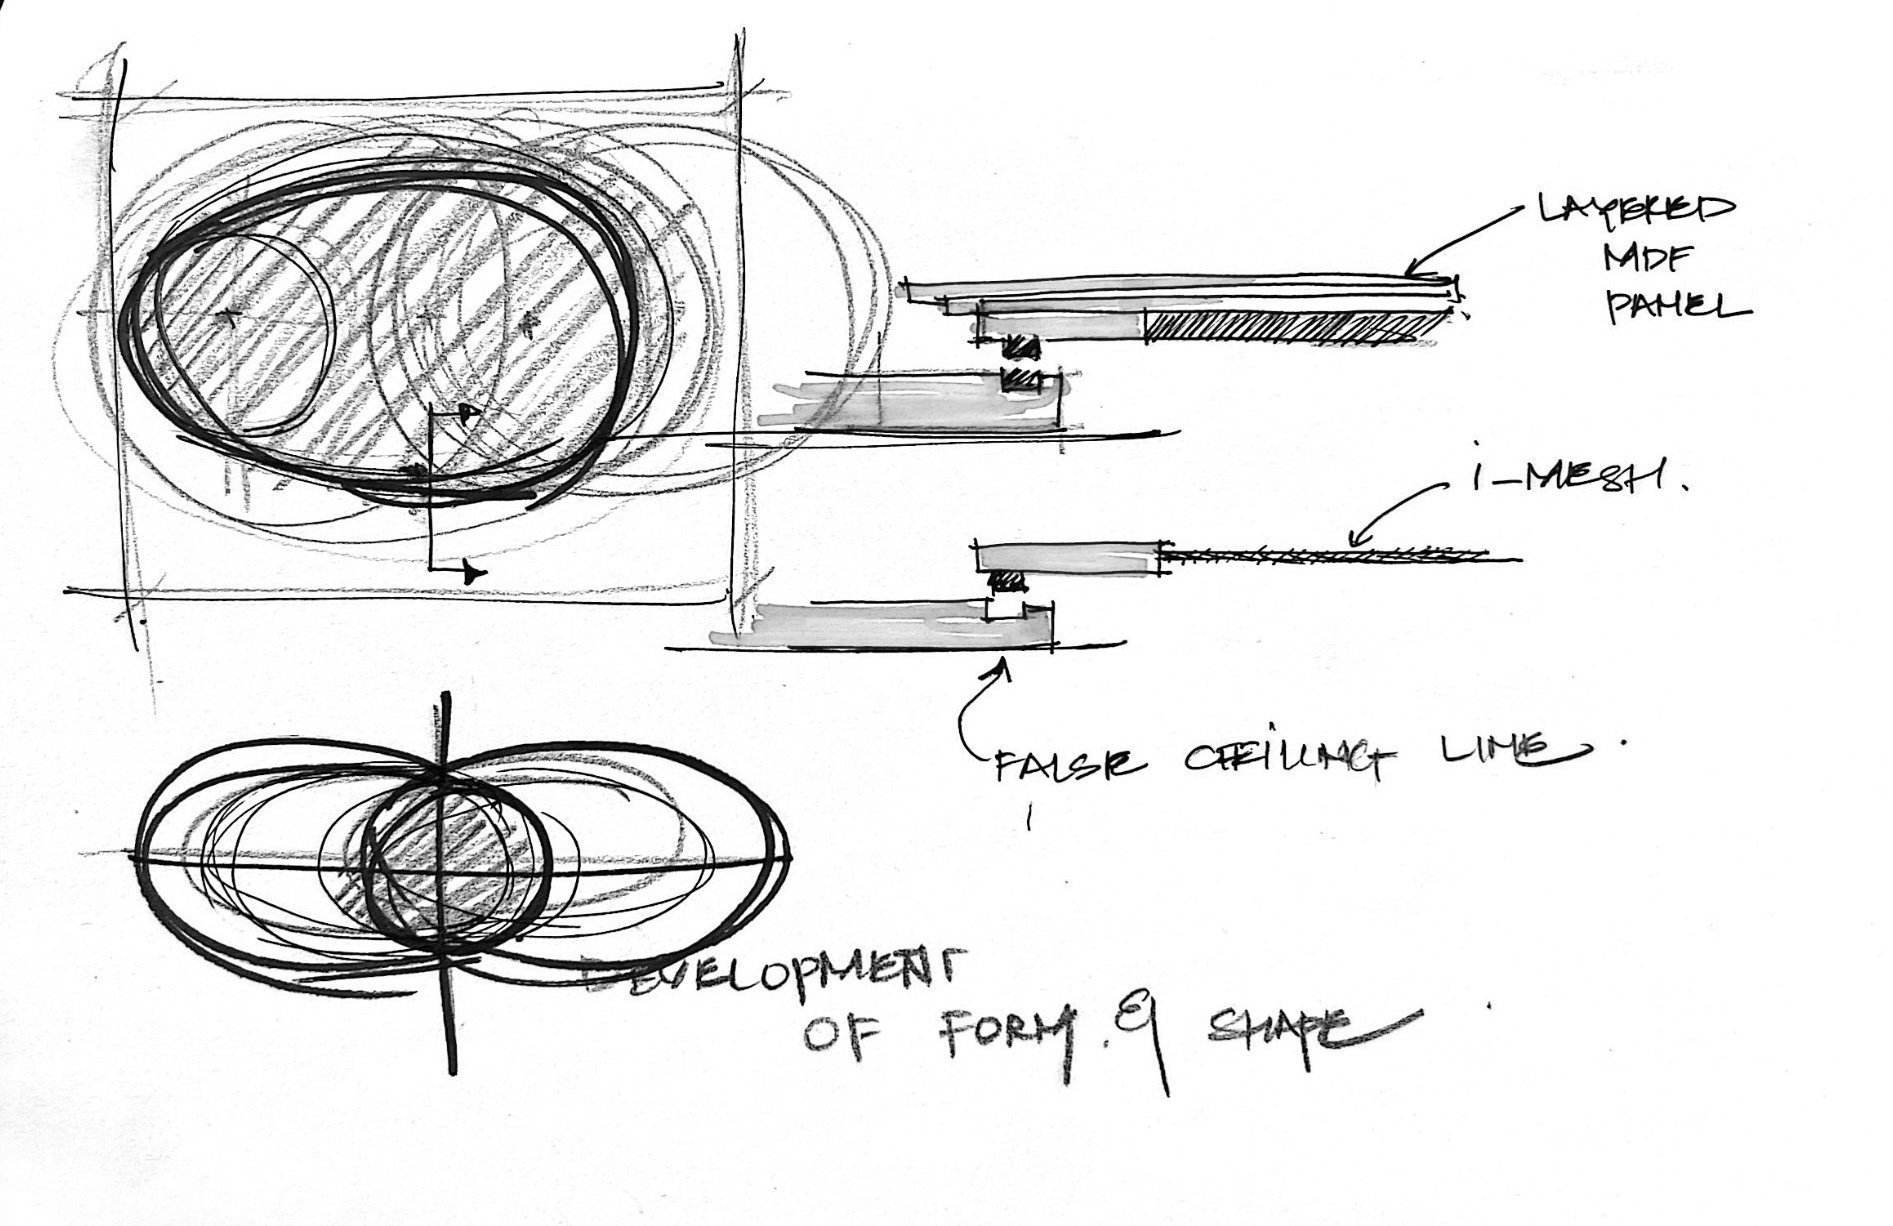 LAYERED
MDF
PANEL
i-MESH.
FALSE CEILING LINE.
DEVELOPMENT
OF FORM. & SHAPE